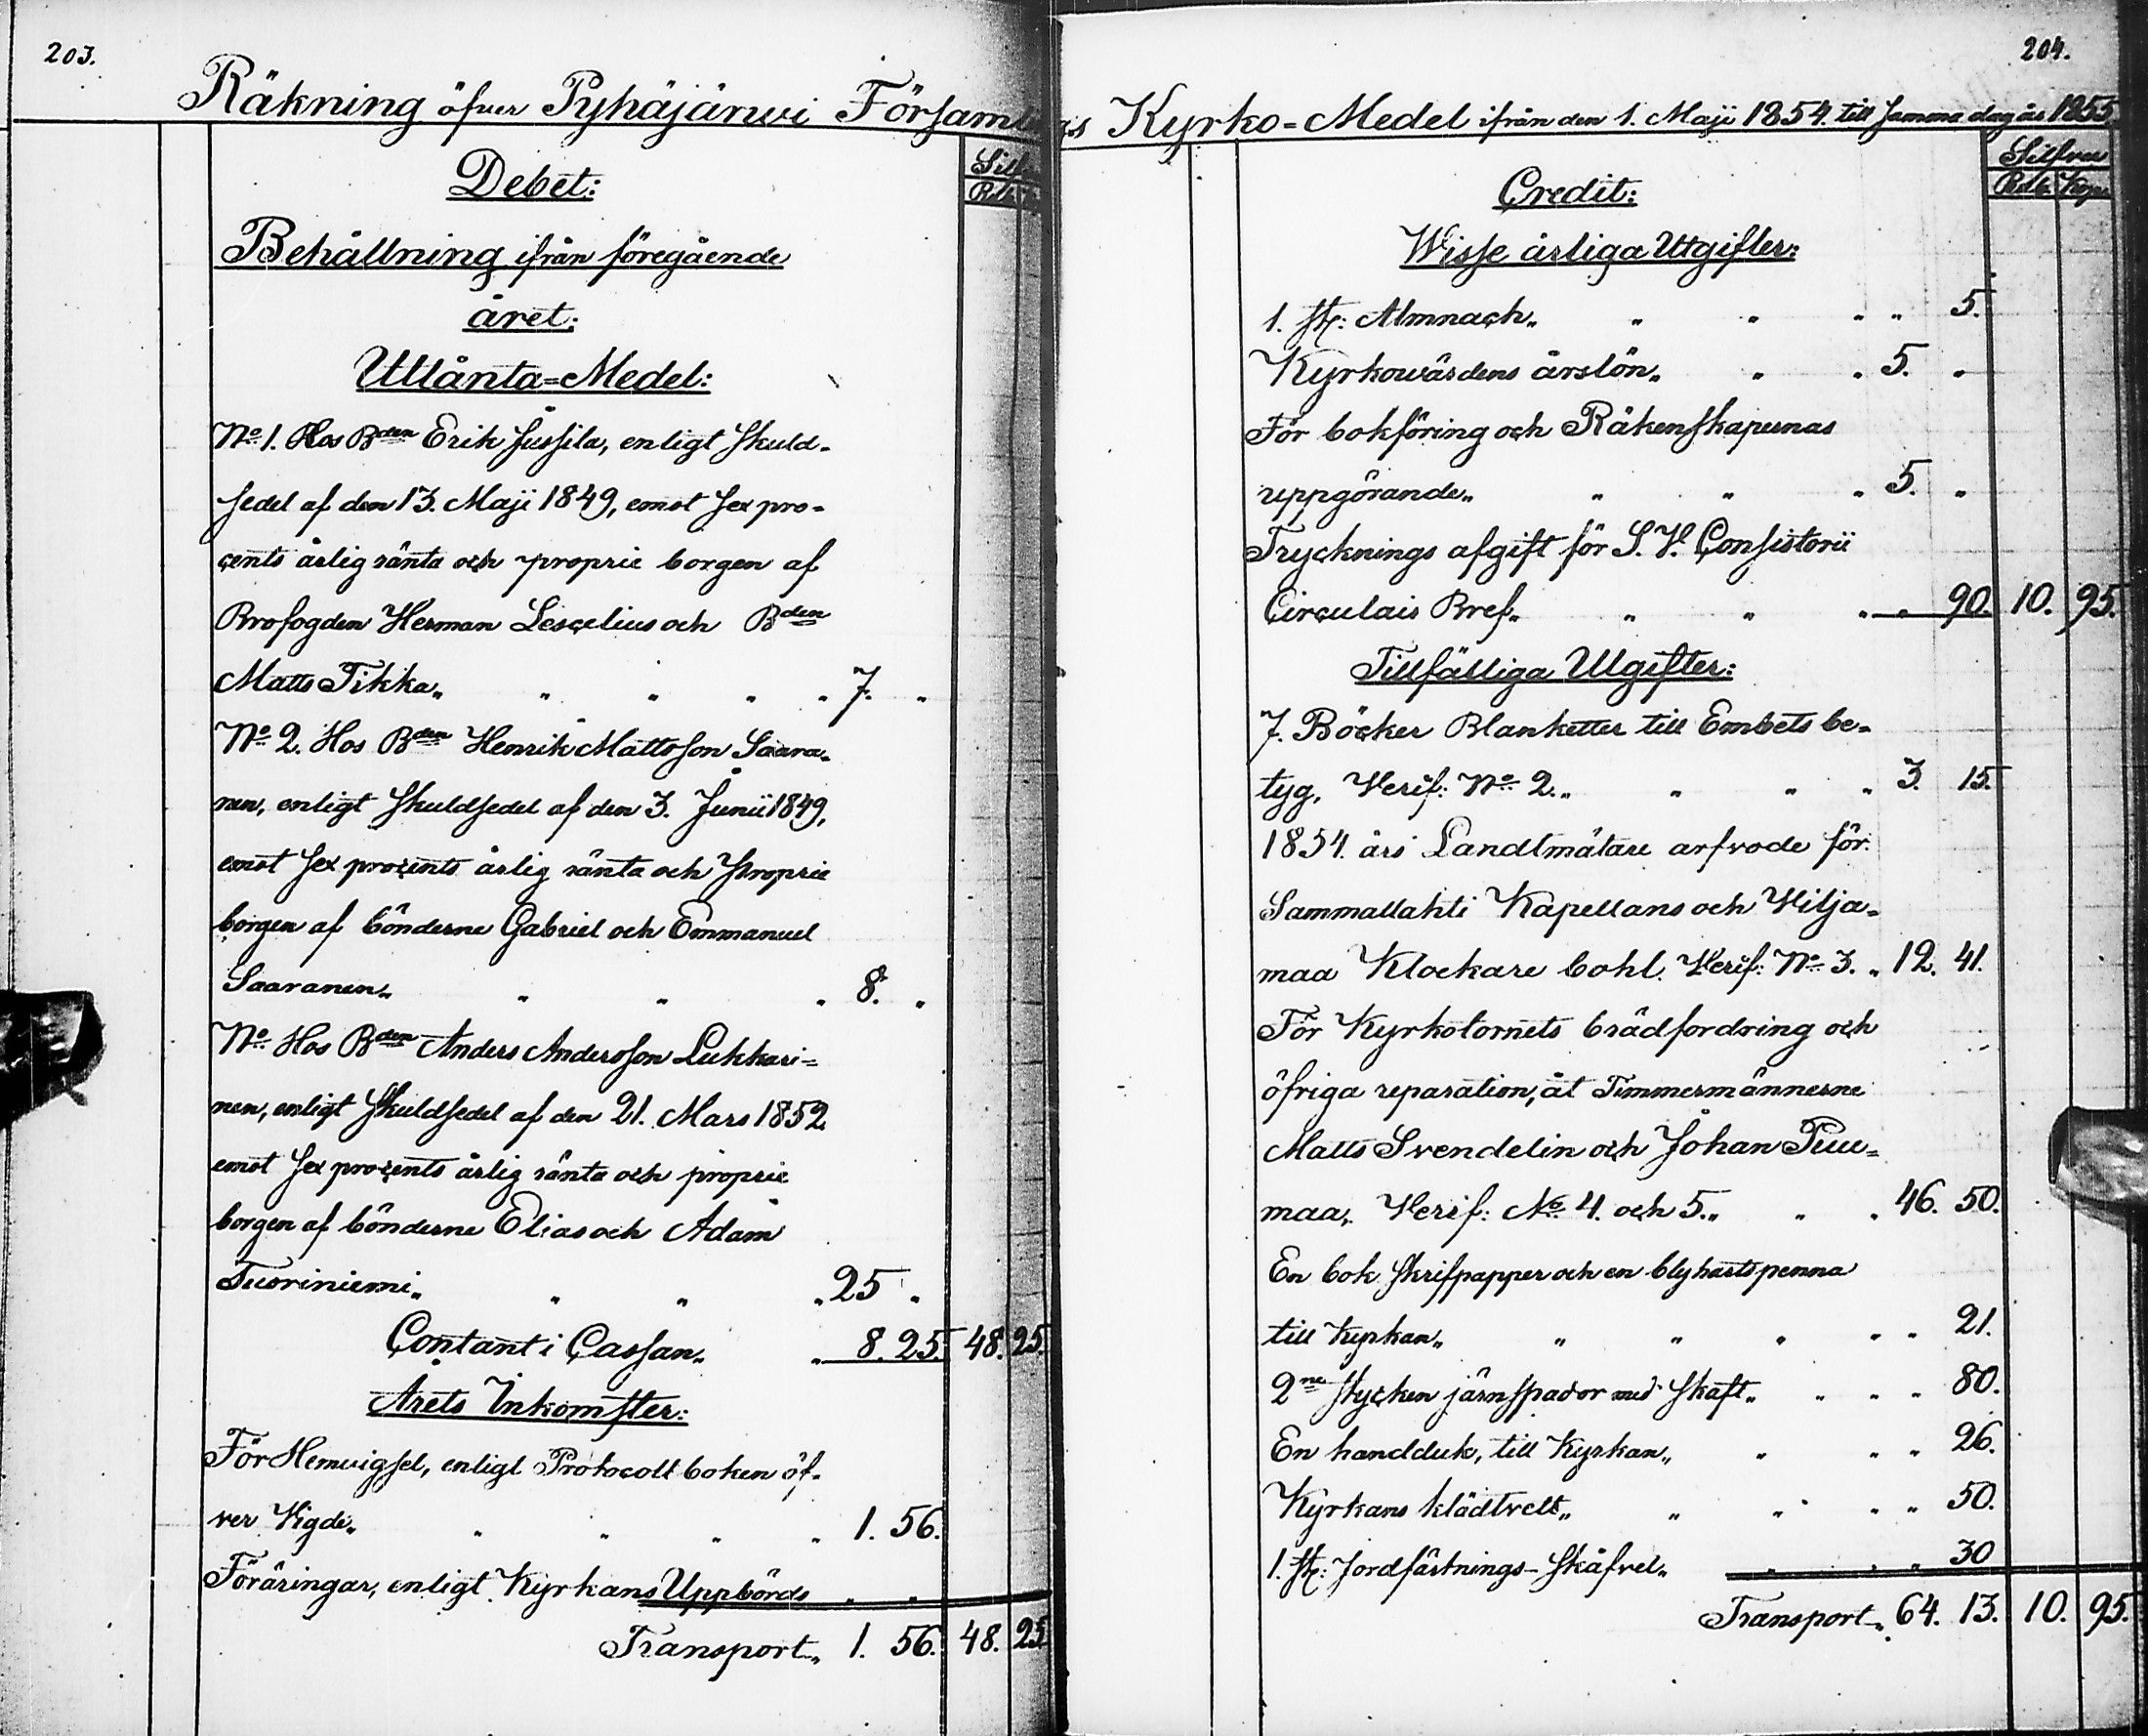 203.
Räkning öfver Pyhäjärwi Församl
Debet:
Silf
Rub
Behållning ifrån föregående
året:
Utlånta=Medel:
No 1. Hos Bden Erik Jussila, enligt skuld-
sedel af den 13. Maji 1849, emot sex pro-
cents årlig ränta och proprie borgen af
Brofogden Herman Lescelius och Bden
Matts Tikka „ „ „ „ „ 7. „
No 2. Hos Bden Henrik Mattsson Saara-
nen, enligt skuldsedel af den 3. Junii 1849,
emot sex procents årlig ränta och proprie
borgen af bönderne Gabriel och Emmanuel
Saaranen „ „ „ „ 8. „
No Hos Bden Anders Andersson Lukkari=
nen, enligt skuldsedel af den 21. Mars 1852
emot sex procents årlig ränta och proprie
borgen af bönderne Elias och Adam
Tuoriniemi „ „ „ „ 25 „
Contant i Cassan „ „ 8. 25. 48. 25.
Årets Inkomster:
För Hemvigsel, enligt Protocoll boken öf-
ver Vigde „ „ „ „ „ 1. 56.
Föräringar, enligt Kyrkans Uppbörds „ „
Transport „ 1. 56. 48. 25
204.
gs Kyrko=Medel ifrån den 1. Maji 1854. till samma dag år 1855.
Credit:
Silfver
Rub. Kop.
Wisse årliga Utgifter:
1. st: Almnach „ „ „ „ „ 5.
Kyrkowärdens årslön „ „ „ 5. „
För bokföring och Räkenskapernas
uppgörande „ „ „ „ 5. „
Trycknings afgift för S. V. Consistorii
Circulair Bref „ „ „ „ „ 90. 10. 95.
Tillfälliga Utgifter:
7. Böcker Blanketter till Embets be-
tyg, Verif: No 2. „ „ „ „ 3. 15.
1854. års Landtmätare arfvode för
Sammallahti Kapellans och Vilja-
maa Klockare bohl. Verif: No 3. „ 12. 41.
För Kyrkotornets brädfordring och
öfriga reparation, åt Timmermännerne
Matts Svendelin och Johan Puu=
maa, Verif: No 4. och 5. „ „ „ 46. 50.
En bok skrifpapper och en blyhartspenna
till Kyrkan „ „ „ „ „ „ 21.
2ne stycken järnspador med skaft „ „ „ „ 80.
En handduk, till Kyrkan „ „ „ „ 26.
Kyrkans klädtvett „ „ „ „ „ 50.
1. st: Jordfästnings-skåfvel „ „ „ „ 30
Transport „ 64. 13. 10. 95.